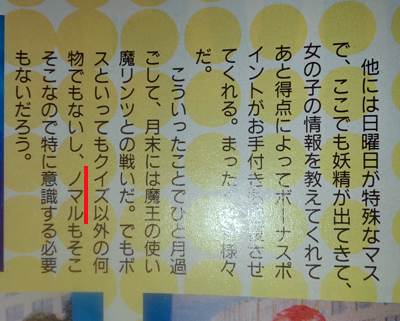 他には日曜日が特殊なマス
で、ここでも妖精が出てきて、
女の子の情報を教えてくれて
あと得点によってボーナスポ
イントがお付き させ
てくれる。まった 様々
だ。
こういったことでひと月過
ごして、月末には魔王の使い
魔リンツとの戦いだ。でもボ
スといってもクイズ以外の何
物でもないし、ノマルもそこ
そこなので特に意識する必要
もないだろう。